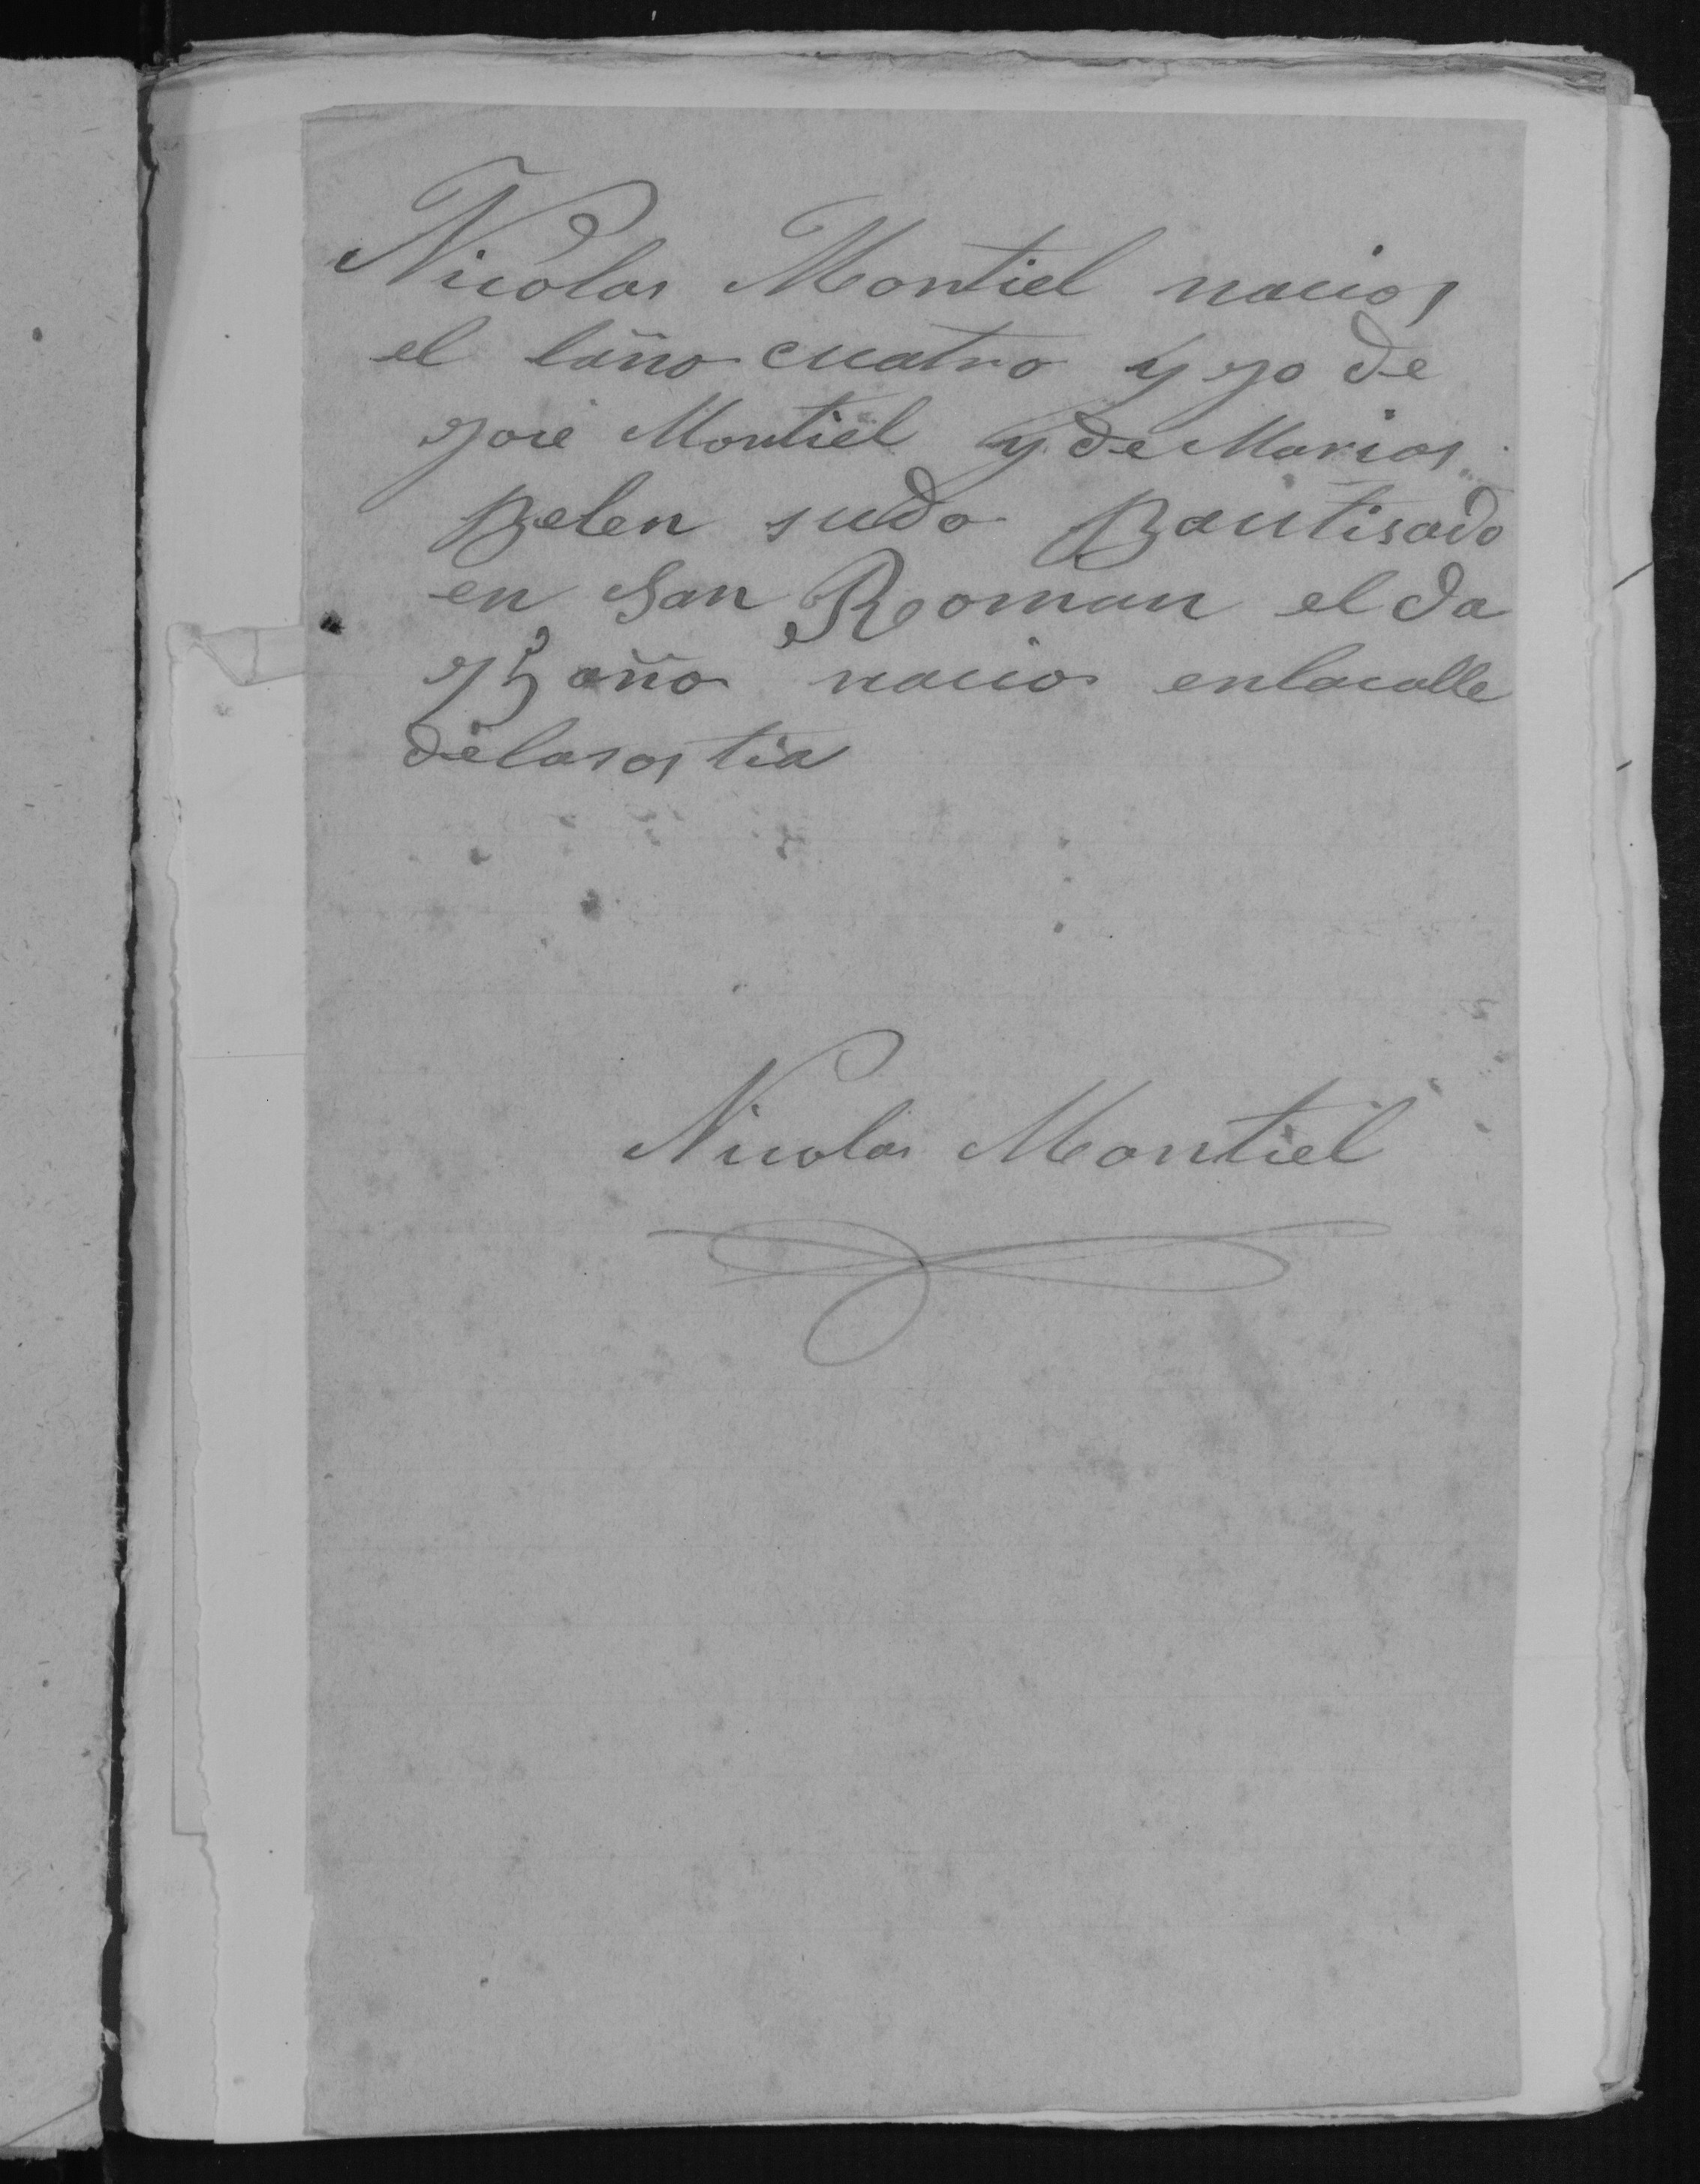 Nicolas Montiel nacio
el laño cuatro y jo de
jose Montiel y de Maria
Belen sudo Bautisado
en San Roman el da
15 año nacio enlacalle
delasostia
Nicolas Montiel